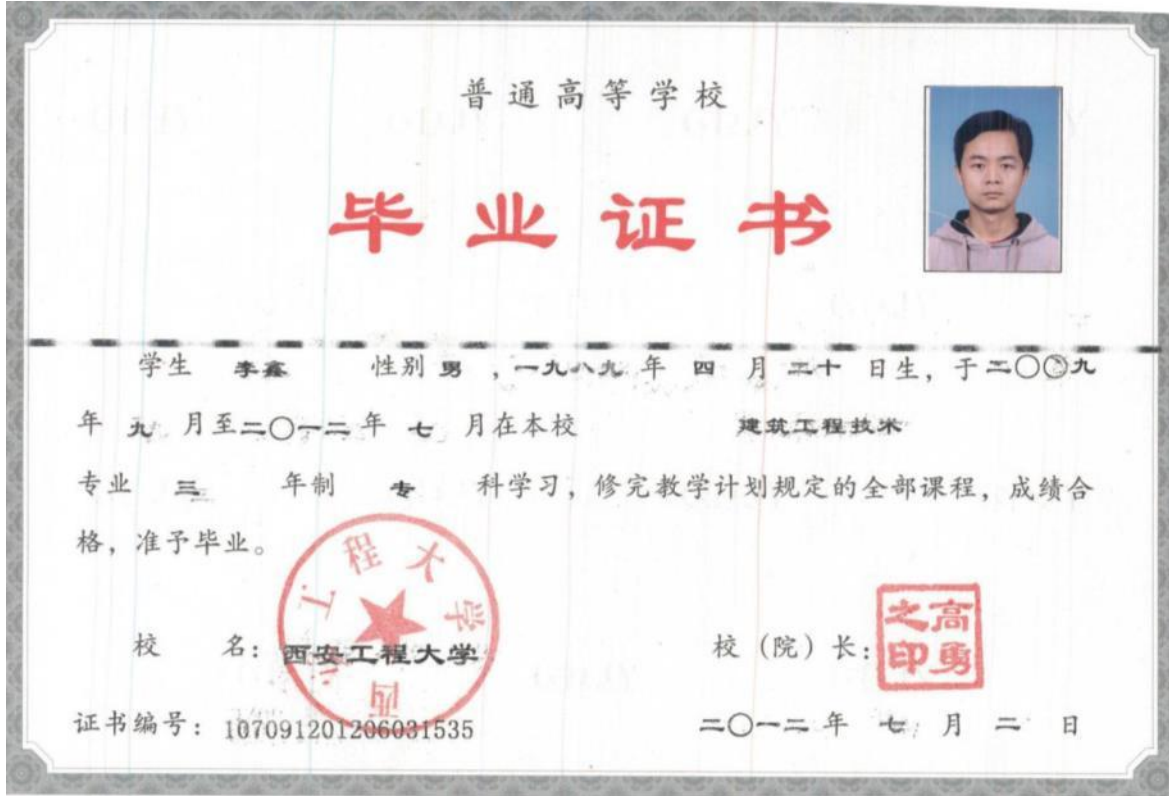 普通高等学校
毕业证书
学生 李鑫 性别 男 ，一九八九 年 四 月 二十 日生，于二〇〇九
年 九 月至二〇一二年 七 月在本校 建筑工程技术
专业 三 年制 专 科学习，修完教学计划规定的全部课程，成绩合
格，准予毕业。
西安工程大学
校 名：西安工程大学
校（院）长：
高勇之印
证书编号：107091201206031535
二〇一二 年 七 月 二 日